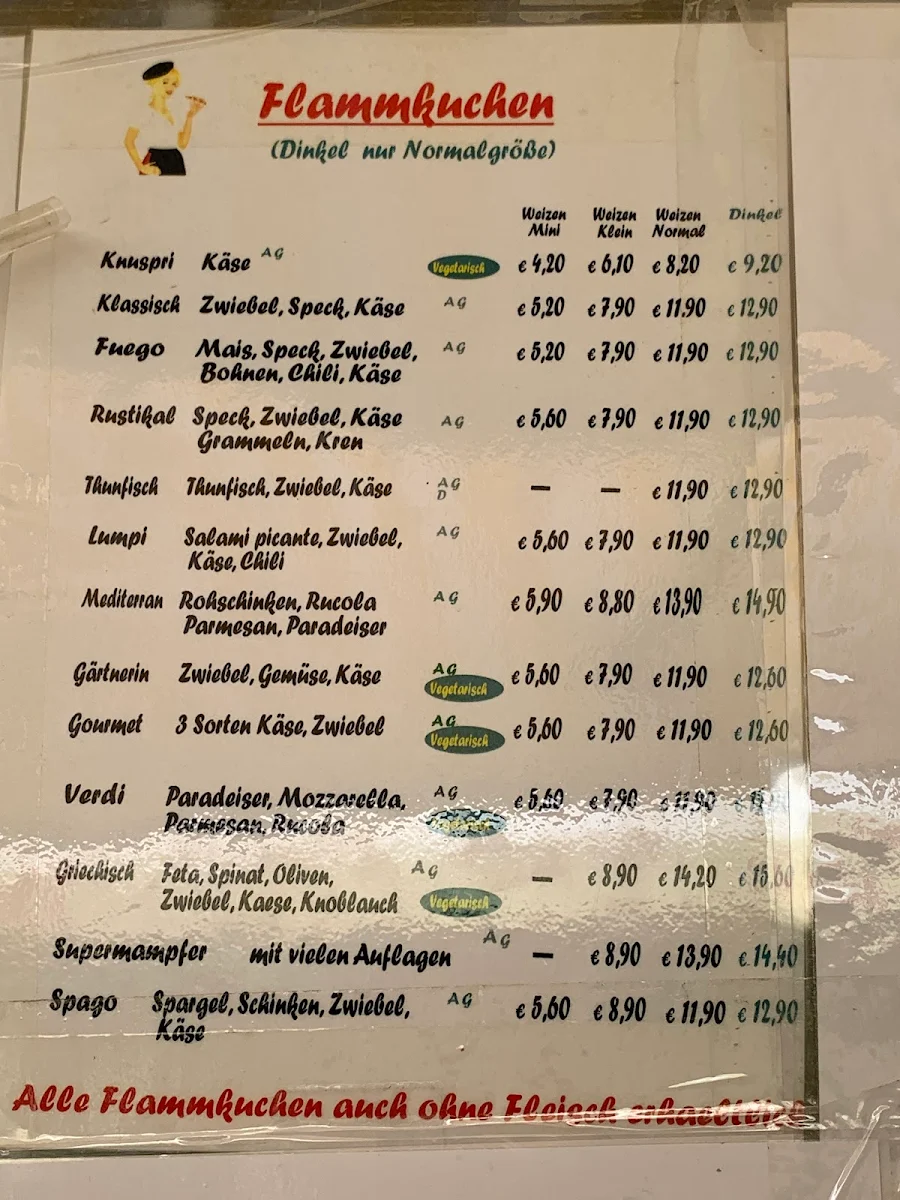 Flammkuchen
(Dinkel nur Normalgröße)
Weizen Mini Weizen Klein Weizen Normal Dinkel
Knuspri Käse AG Vegetarisch € 4,20 € 6,10 € 8,20 € 9,20
Klassisch Zwiebel, Speck, Käse AG € 5,20 € 7,90 € 11.90 € 12,90
Fuego Mais, Speck, Zwiebel, AG € 5,20 € 7,90 € 11,90 € 12,90
Bohnen, Chili, Käse
Rustikal Speck, Zwiebel, Käse AG € 5,60 € 7,90 € 11,90 € 12,90
Grammeln, Kren
Thunfisch Thunfisch, Zwiebel, Käse AG D – – € 11,90 € 12,90
Lumpi Salami picante, Zwiebel, AG € 5,60 € 7,90 € 11,90 € 12,90
Käse, Chili
Mediterran Rohschinken, Rucola AG € 5,90 € 8,80 € 13,90 € 14,90
Parmesan, Paradeiser
Gärtnerin Zwiebel, Gemüse, Käse AG Vegetarisch € 5,60 € 7,90 € 11,90 € 12,60
Gourmet 3 Sorten Käse, Zwiebel AG Vegetarisch € 5,60 € 7,90 € 11,90 € 12,60
Verdi Paradeiser, Mozzarella, AG € 5,60 € 7,90 € 11,90
Parmesan, Rucola
Griechisch Feta, Spinat, Oliven, AG – € 8,90 € 14,20 € 15,60
Zwiebel, Kaese, Knoblauch Vegetarisch
Supermampfer mit vielen Auflagen AG – € 8,90 € 13,90 € 14,40
Spago Spargel, Schinken, Zwiebel, AG € 5,60 € 8,90 € 11,90 € 12,90
Käse
Alle Flammkuchen auch ohne Fleisch erhaeltlich